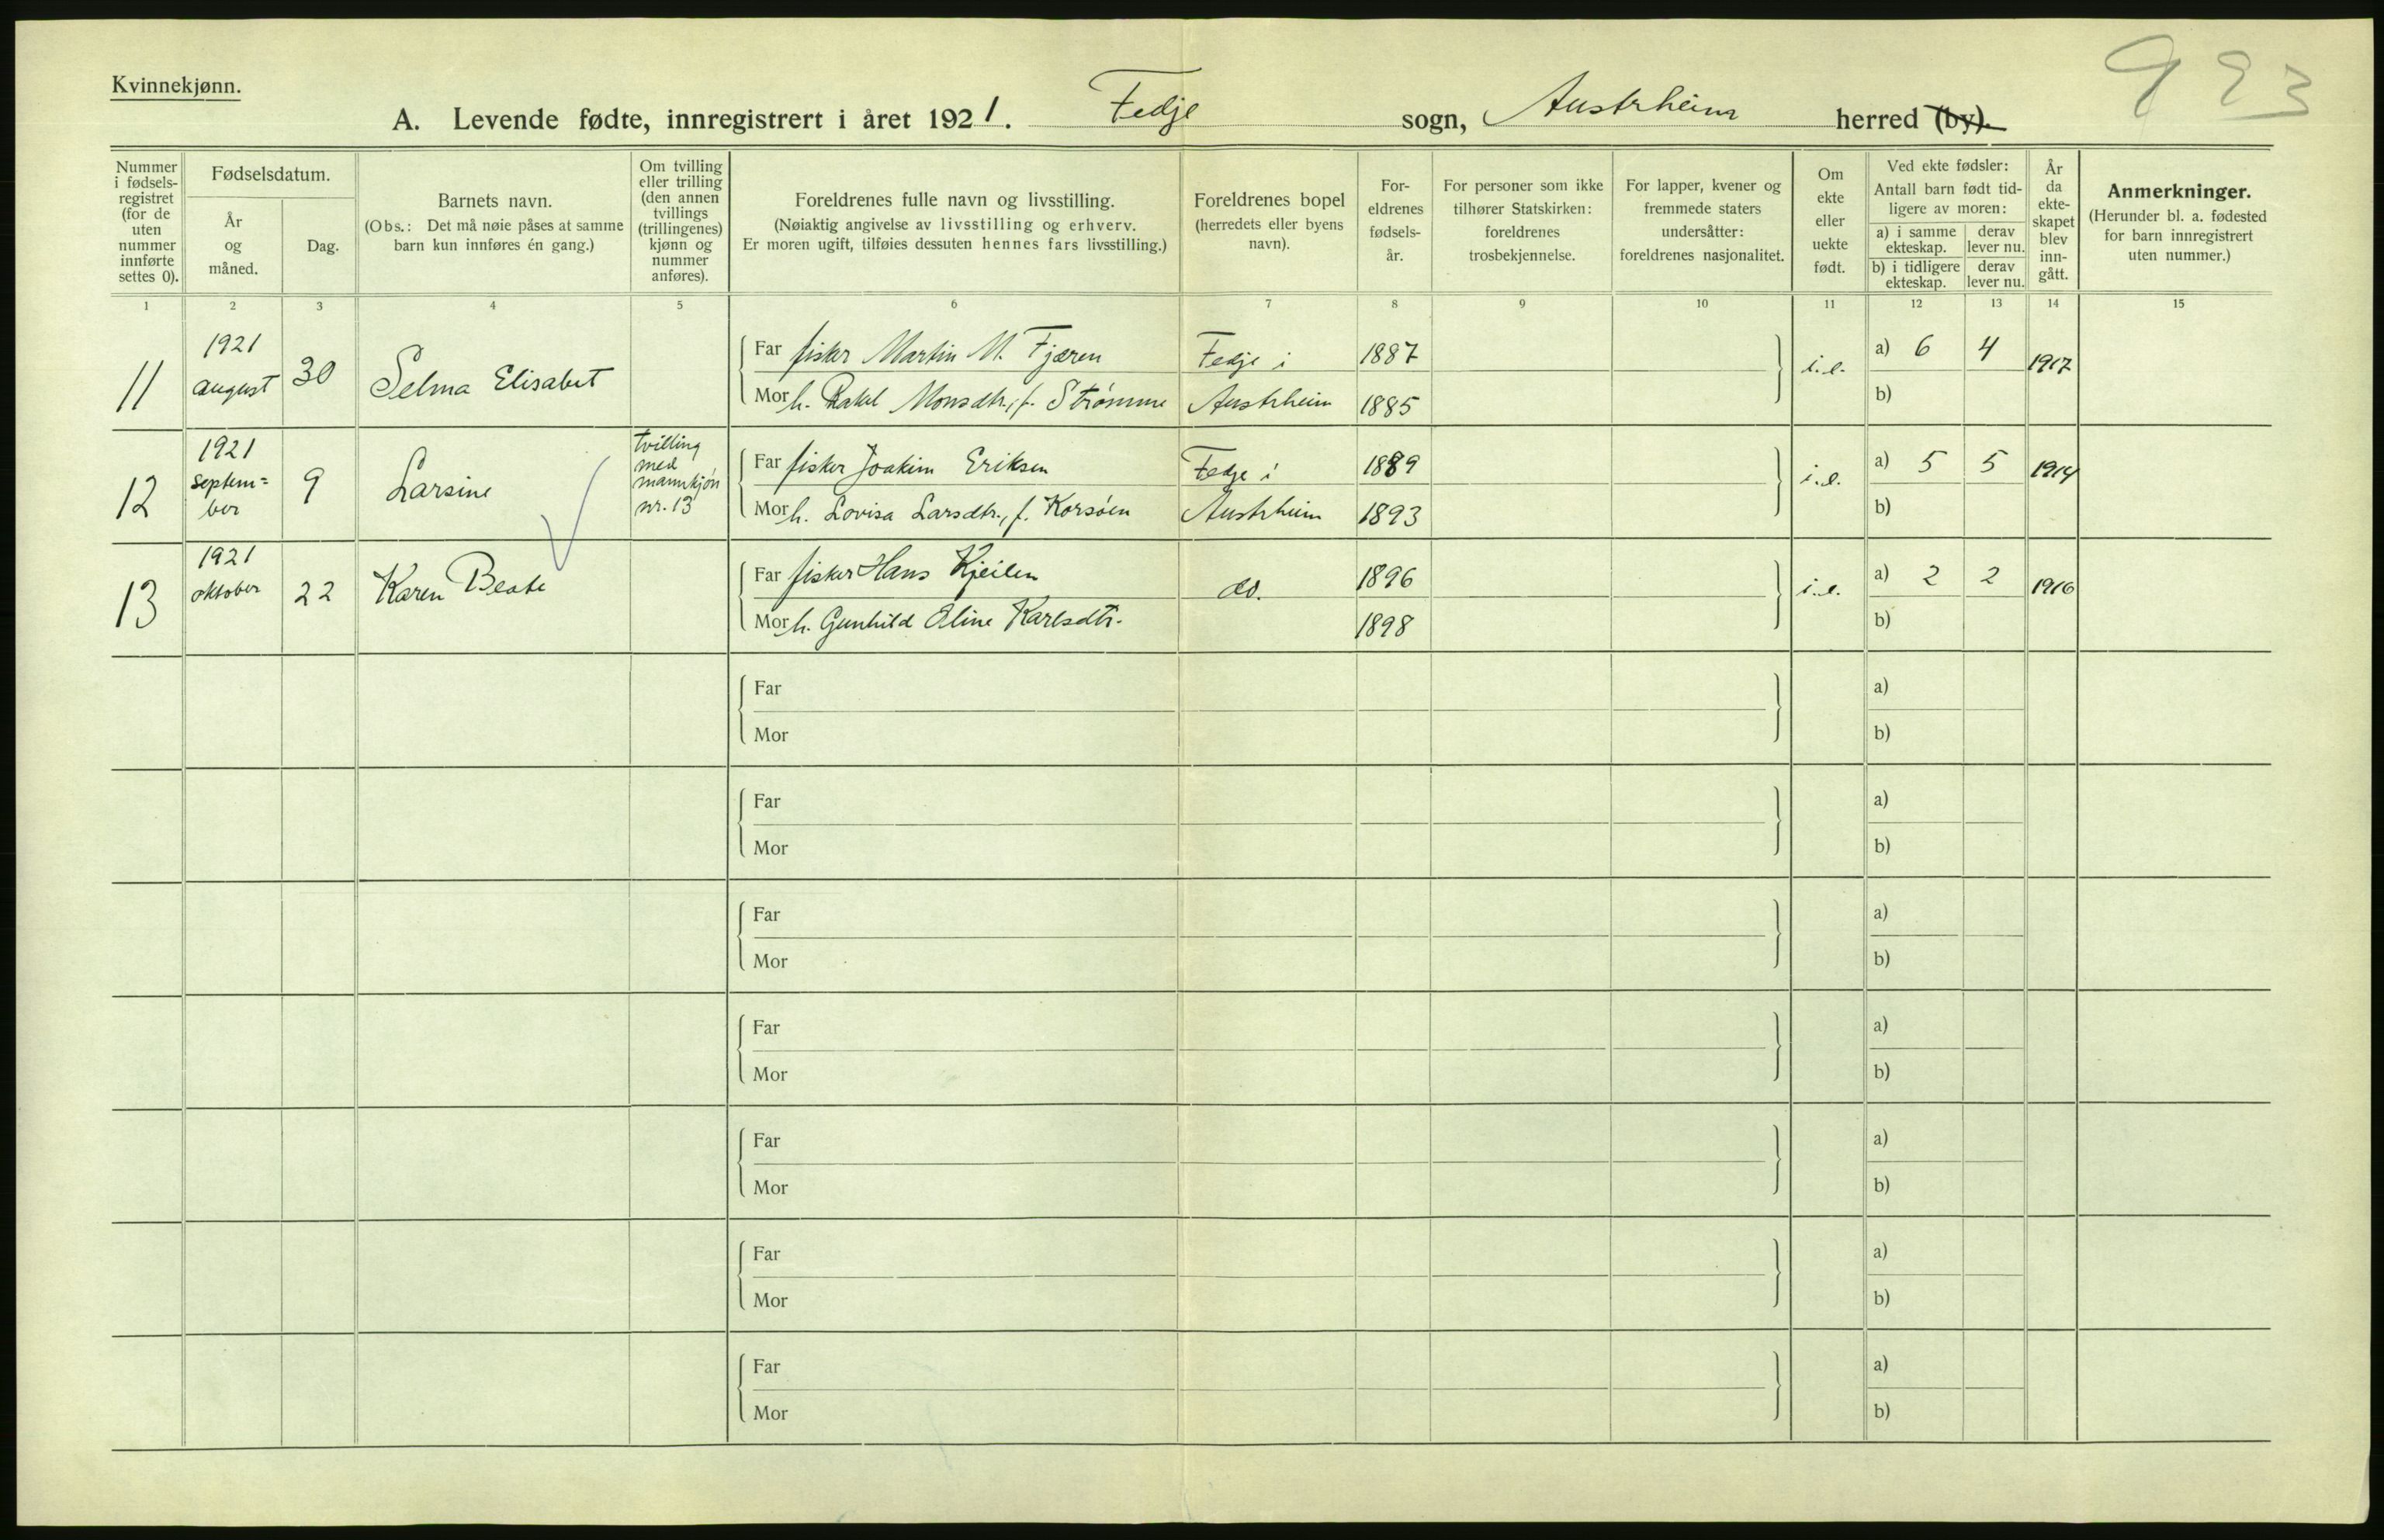 923
Kvinnekjønn.
A. Levende fødte, innregistrert i året 1921. Fedje sogn, Austrheim herred (by).
Nummer i fødsels-registret (for de uten nummer innførte settes 0).
Fødselsdatum.
År og måned.
Dag.
Barnets navn.
(Obs.: Det må nøie påses at samme barn kun innføres én gang.)
Om tvilling eller trilling (den annen tvillings (trillingenes) kjønn og nummer anføres).
Foreldrenes fulle navn og livsstilling.
(Nøiaktig angivelse av livsstilling og erhverv.
Er moren ugift, tilføies dessuten hennes fars livsstilling.)
Foreldrenes bopel
(herredets eller byens navn).
For-eldrenes fødsels-år.
For personer som ikke tilhører Statskirken: foreldrenes trosbekjennelse.
For lapper, kvener og fremmede staters undersåtter: foreldrenes nasjonalitet.
Om ekte eller uekte født.
Ved ekte fødsler:
Antall barn født tid-ligere av moren:
a) i samme ekteskap.
derav lever nu.
b) i tidligere ekteskap.
derav lever nu.
År da ekte-skapet blev inn-gått.
Anmerkninger.
(Herunder bl. a. fødested for barn innregistrert uten nummer.)
1 2 3 4 5 6 7 8 9 10 11 12 13 14 15
11 1921 august 30 Selma Elisabet
Far fisker Martin M. Fjæren Fedje i 1887 i.e. a) 6 4 1917
Mor h. Rakel Monsdtr., f. Strømme Austrheim 1885 b)
12 1921 septem=ber 9 Larsine tvilling med mannkjøn nr. 13
Far fisker Joakim Eriksen Fedje i 1889 i.e. a) 5 5 1914
Mor h. Lovisa Larsdtr., f. Korsøen Austrheim 1893 b)
13 1921 oktober 22 Karen Beate
Far fisker Hans Kjeilen do. 1896 i.e. a) 2 2 1916
Mor h. Gunhild Oline Karlsdtr. 1898 b)
Far a)
Mor b)
Far a)
Mor b)
Far a)
Mor b)
Far a)
Mor b)
Far a)
Mor b)
Far a)
Mor b)
Far a)
Mor b)